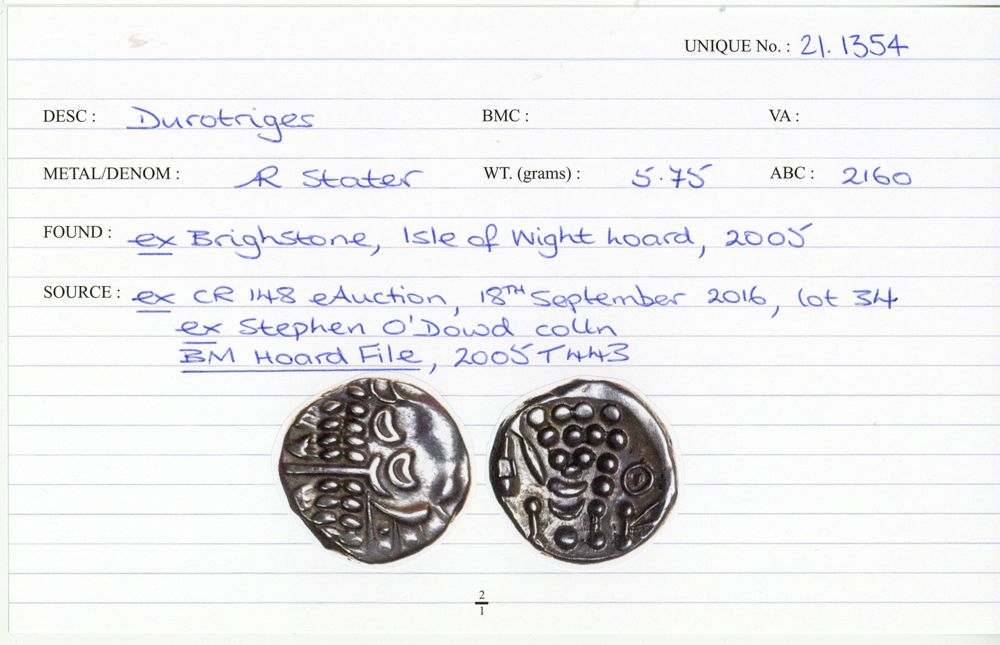 UNIQUE No. : 21.1354
DESC : Durotriges BMC : VA :
METAL/DENOM : AR Stater WT. (grams) : 5.75 ABC : 2160
FOUND : ex Brighstone, Isle of Wight hoard, 2005
SOURCE : ex CR 148 eAuction, 18TH September 2016, lot 34
ex Stephen O'Dowd colln
BM Hoard File, 2005 T443
2
1